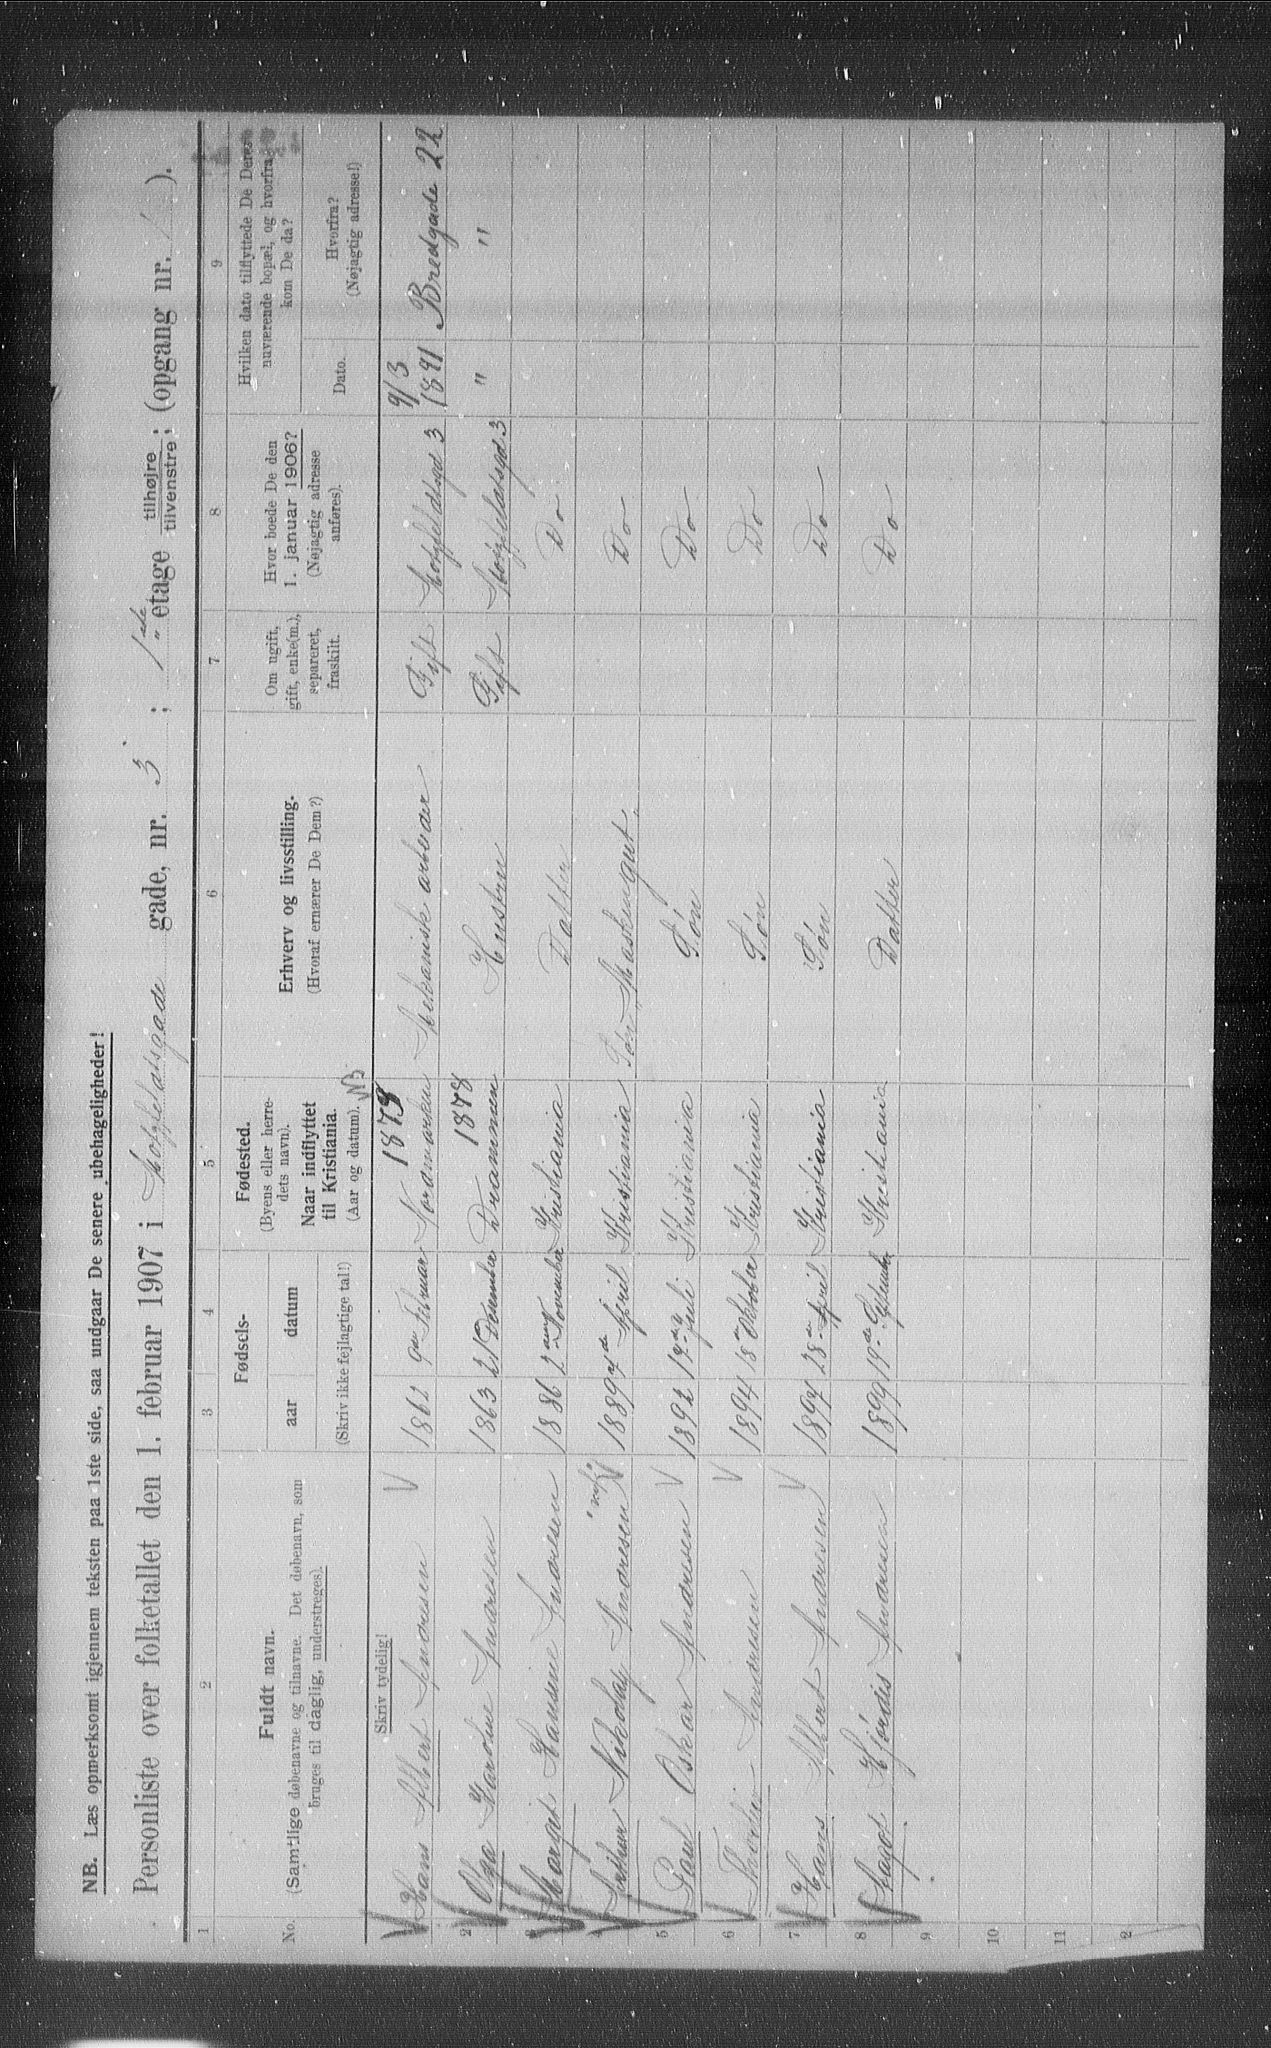 NB. Læs opmerksomt igjennem teksten paa 1ste side, saa undgaar De senere ubehageligheder!
Personliste over folketallet den 1. februar 1907 i gade, nr. 3 ; 1ste etage tilhøjre tilvenstre ; (opgang nr. ).
1 2 3 4 5 6 7 8 9
No.
Fuldt navn.
(Samtlige døbenavne og tilnavne. Det døbenavn, som
bruges til daglig, understreges).
Skriv tydelig!
Fødsels-
aar datum
(Skriv ikke fejlagtige tal!)
Fødested.
(Byens eller herre-
dets navn).
Naar indflyttet
til Kristiania.
(Aar og datum).
NB
Erhverv og livsstilling.
(Hvoraf ernærer De Dem?)
Om ugift,
gift, enke(m.),
separeret,
fraskilt.
Hvor boede De den
1. januar 1906?
(Nøjagtig adresse
anføres).
Hvilken dato tilflyttede De Deres
nuværende bopæl, og hvorfra
kom De da?
Dato.
Hvorfra?
(Nøjagtig adresse!)
Hans Albert Andresen 1862 9de Februar Nordmarken 1878 Mekanisk arbeider Gift 3 9/3 1891 Bredgade 22
2 Olga Karoline Andresen 1863 21 December Drammen 1878 Hustru Gift 3 " "
3 Margit Hansine Andresen 1886 2 November Kristiania Datter Do
4 Arthur Nikolay Andresen 1889 April Kristiania Søn, Maskingut Do
5 Paul Oskar Andresen 1892 Juli Kristiania Søn Do
6 Andresen 1894 18 Oktober Kristiania Søn Do
7 Hans Albert Andresen 1897 28 April Kristiania Søn Do
8 Aagot Hjørdis Andresen 1899 19de September Kristiania Datter Do
9
10
11
2